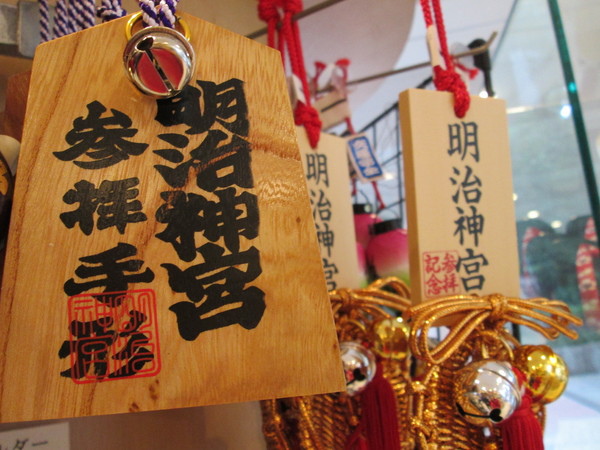 明治神宮
参拝手形
明治神宮
明治神宮
参拝
記念
ダー